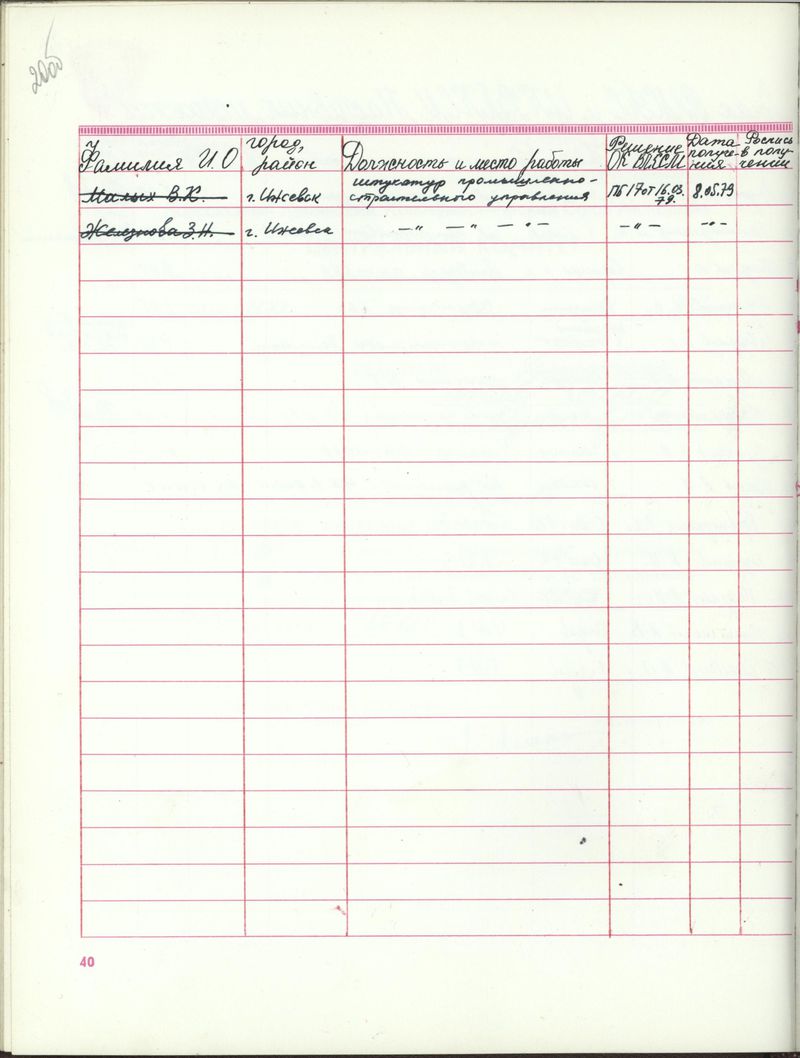 200б
Фамилия И.О
город,
район
Должность и место работы
Решение
ОК ВЛКСМ
Дата
получе-
ния
Роспись
в полу-
чении
Малых В.К.
г. Ижевск
штукатур промышленно-
строительного управления
ПБ 17 от 16.03.
79.
8.05.79
Железнова З.Н.
г. Ижевск
—"— —"— —"—
—"—
—"—
40